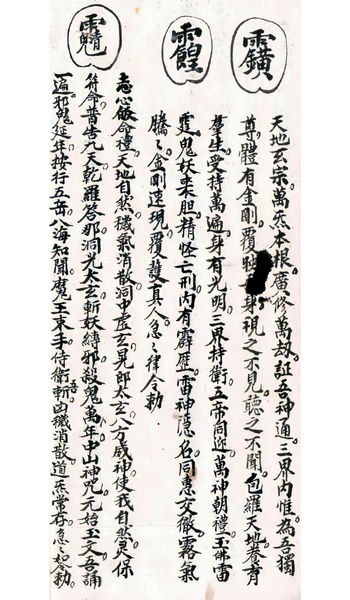 天地玄宗萬炁本根廣修萬劫証吾神通三界内惟為吾獨
尊體有金剛覆身視之不見聽之不聞包羅天地養育
羣生受持萬遍身有光明三界持衛五帝同迎萬神朝禮玉佛雷
霆鬼妖呆胆精怪亡刑内有霹靂雷神隱名同惠交徹霧氣
騰々金剛速現覆護真人急々律令勅
志心皈命禮天地自然穢氣消散洞中虛玄晃郎太玄八方威神使我自然灵保
符命普告九天乾羅答那洞光太玄斬妖縛邪殺鬼萬年中山神咒元始玉文吾誦
一遍邪鬼延年按行五岳八海知聞魔王束手侍衛吾斬凶穢消散道炁常存急々如令勅